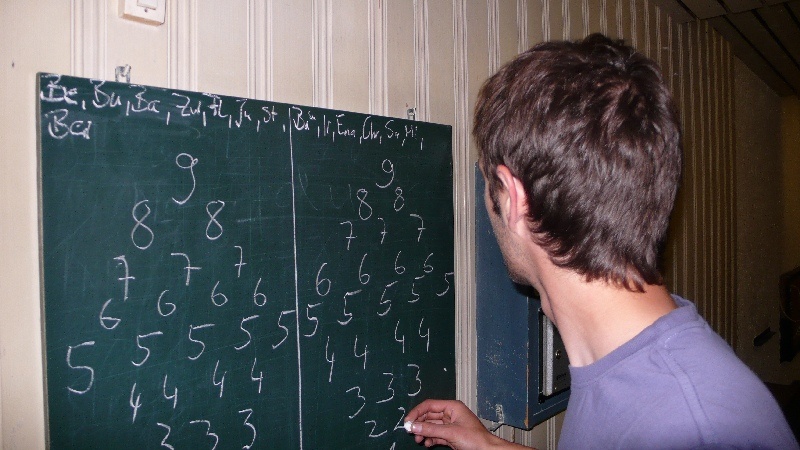 Be, Bu, Ba, Zu, Fl, Ju, St,
9
8 8
7 7 7
6 6 6 6
5 5 5 5 5
4 4 4 4
3 3 3
Ir, Ena, Chr, Su, Mi,
9
8 8
7 7 7
6 6 6 6
5 5 5 5 5
4 4 4 4
3 3 3
2 2